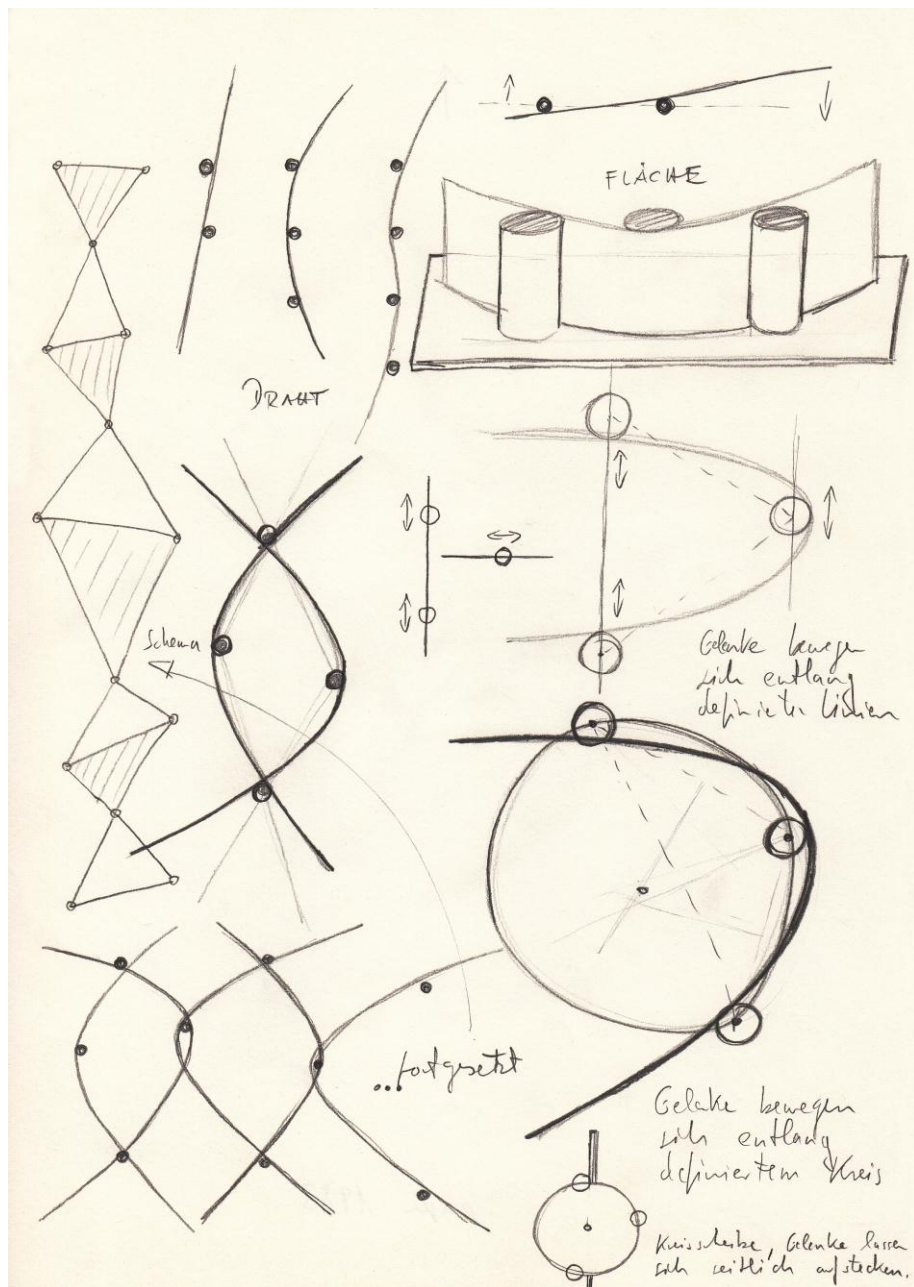 FLÄCHE
DRAHT
Schema
Gelenke bewegen
sich entlang
definierter Linien
...fortgesetzt
Gelenke bewegen
sich entlang
definiertem Kreis
Kreisscheibe, Gelenke lassen
sich seitlich aufstecken.